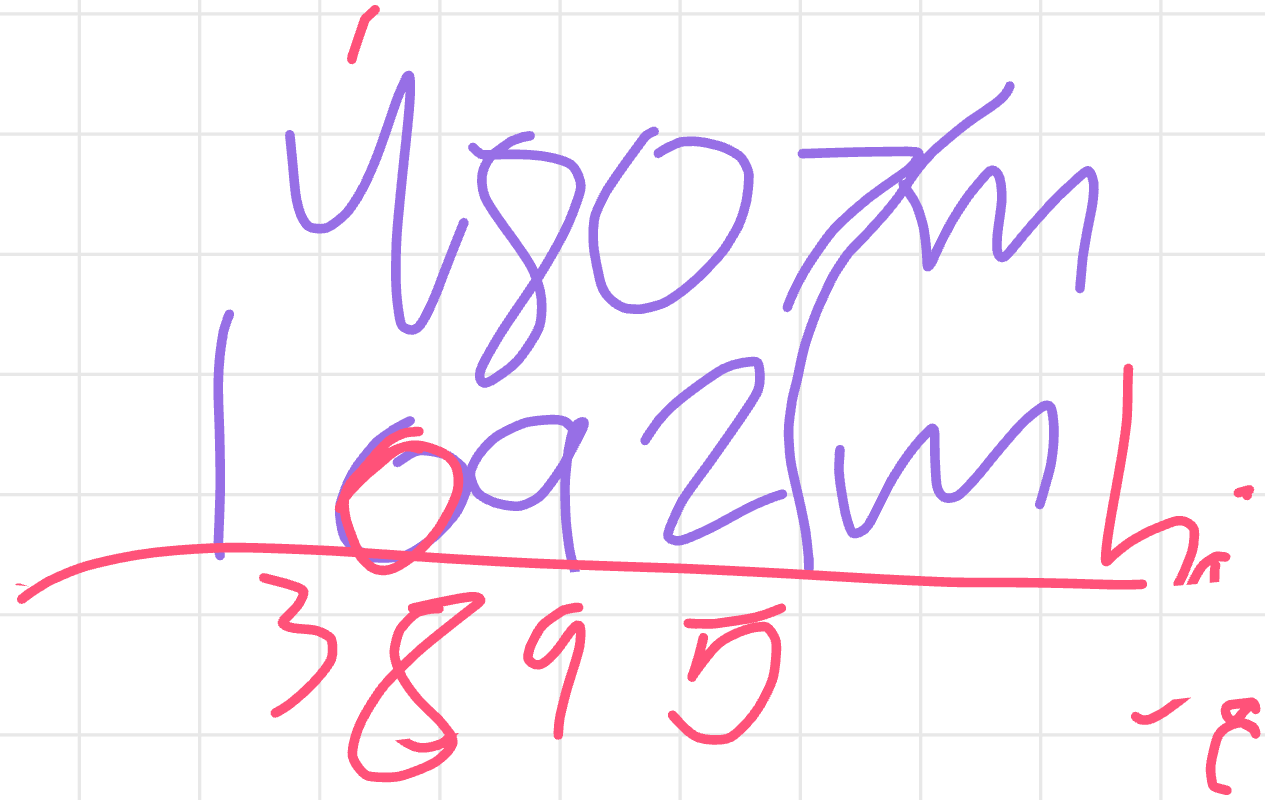 4807m
1092m
3895